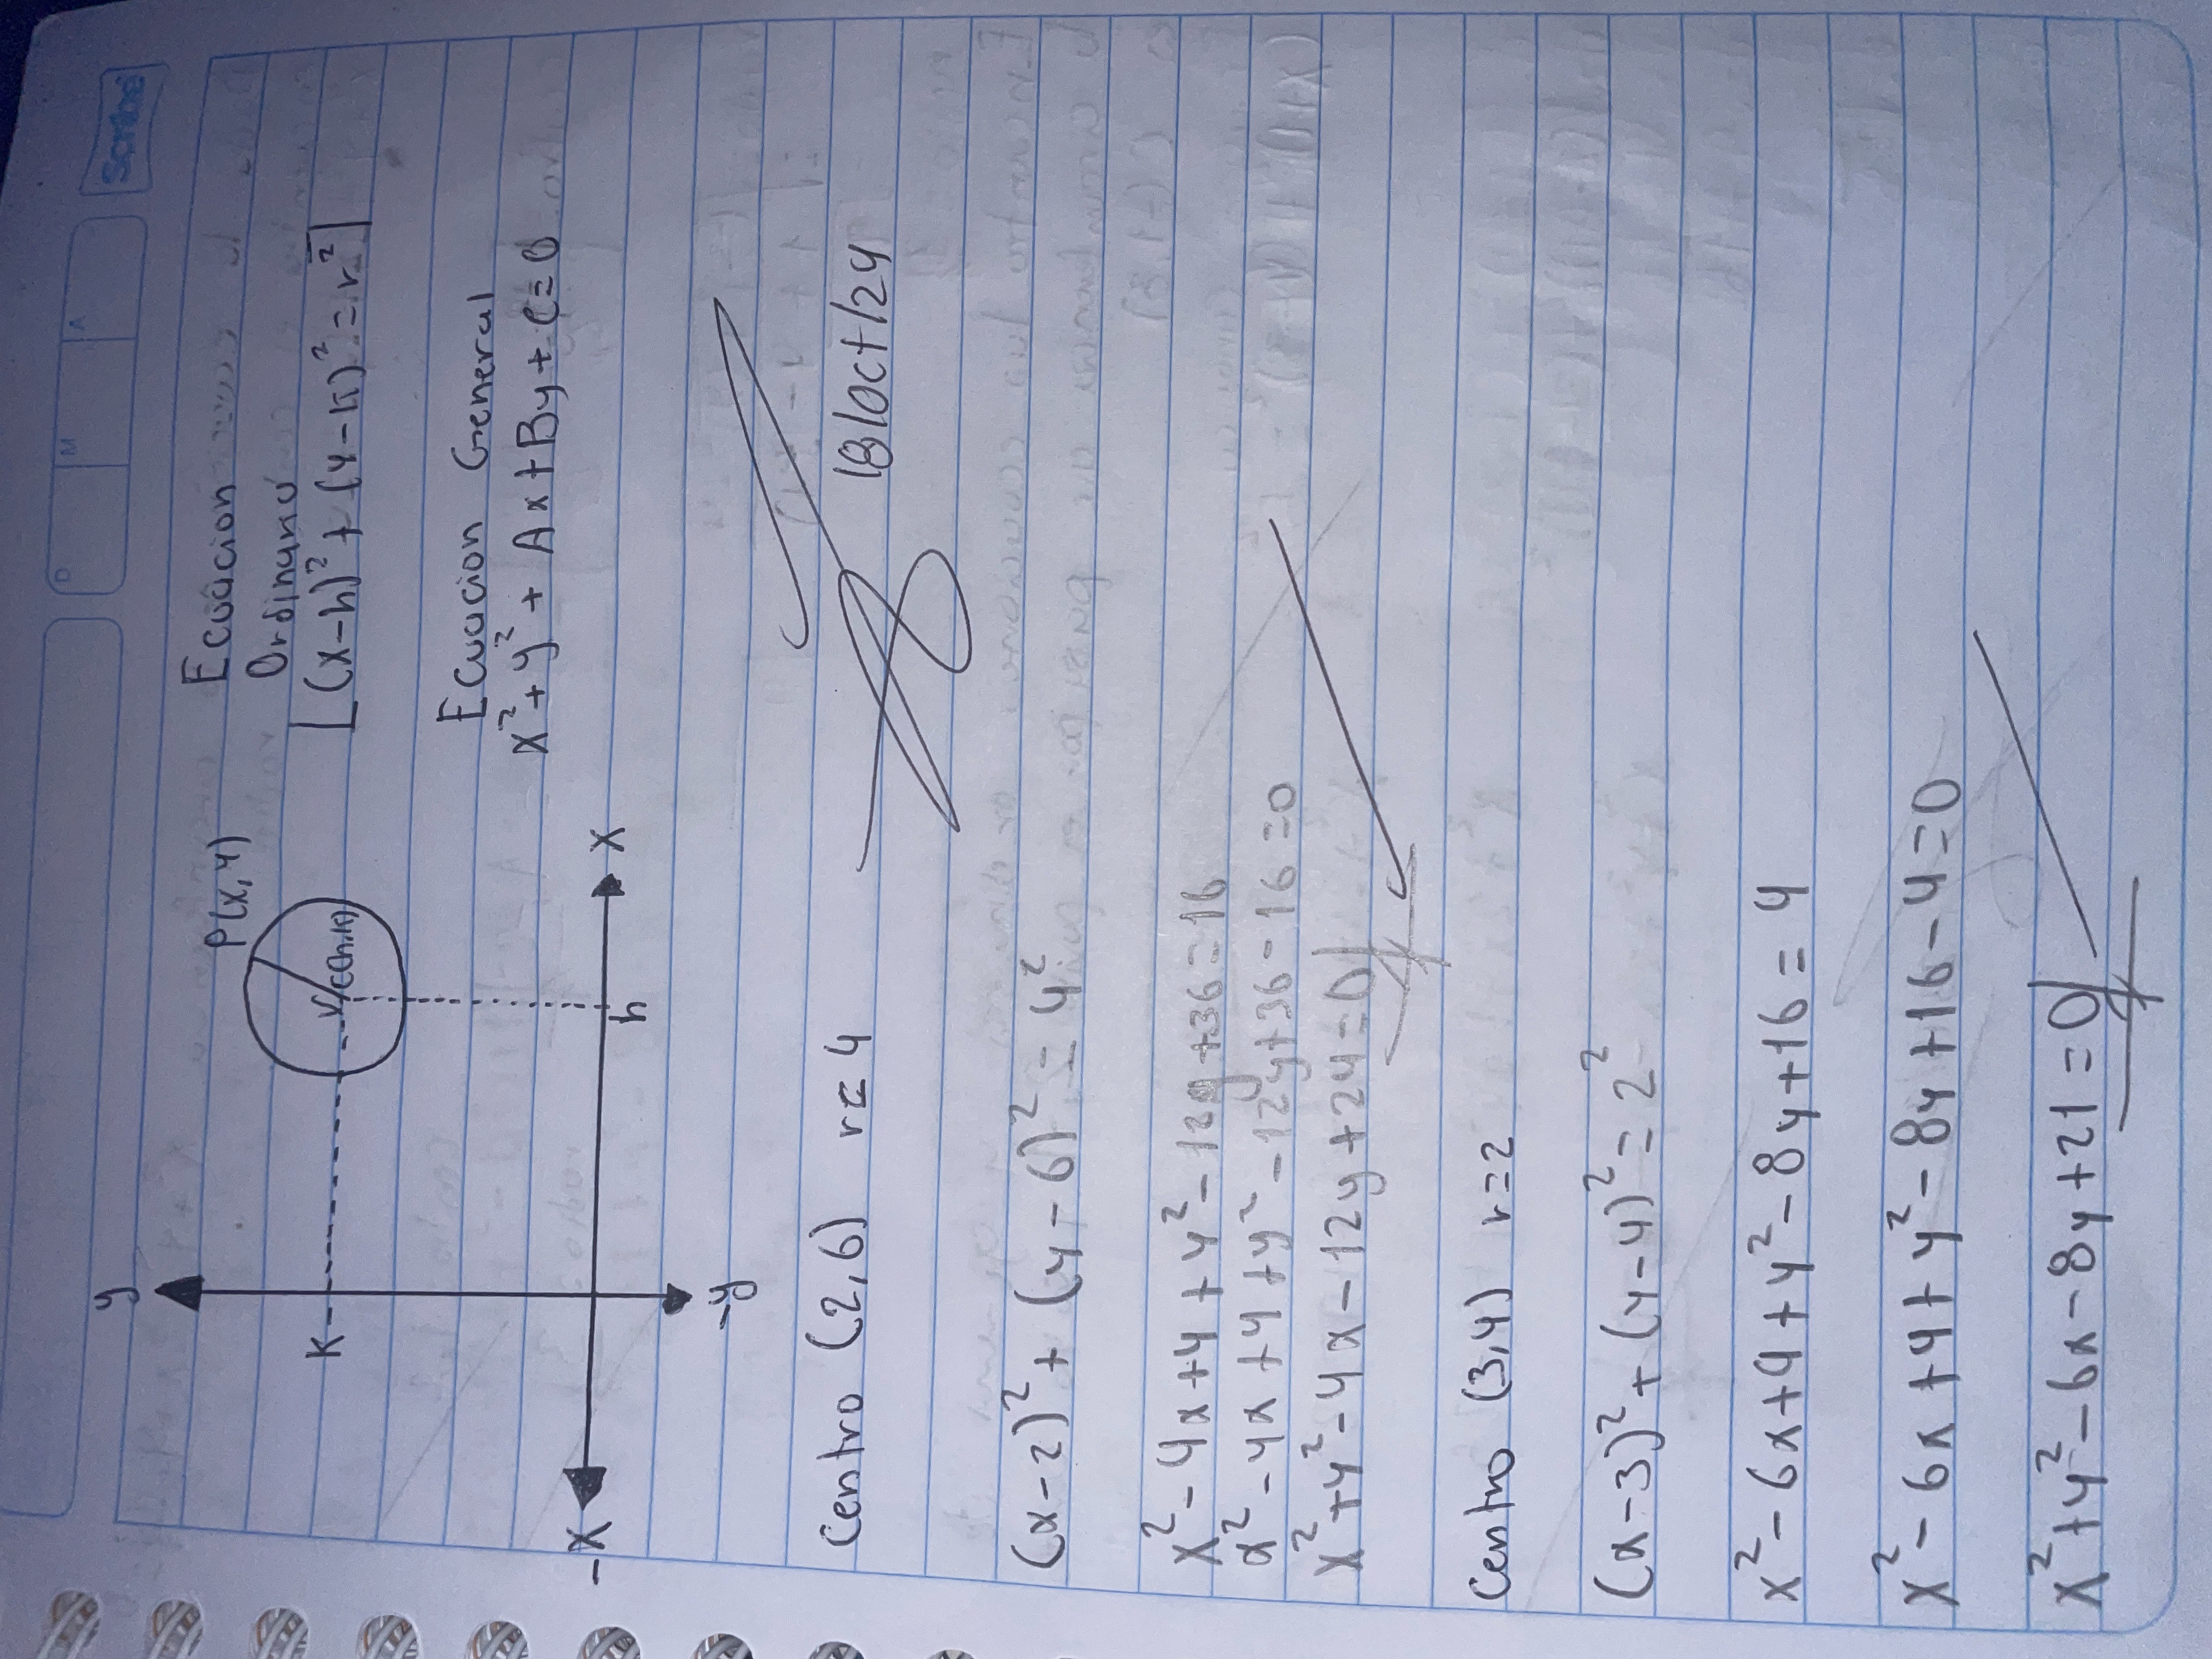 Scribe
D M A
y
P(x,y)
Ecuacion
Ordinaria
K
r
C(h,k)
(x-h)² + (y-k)² = r²
Ecuacion General
x²+y² + Ax+By+C=0
-X
X
h
-y
Centro (2,6) r=4
18/oct/24
(x-2)² + (y-6)² = 4²
x²-4x+4+y²-12y+36=16
x²-4x+4+y²-12y+36-16=0
x²+y²-4x-12y+24=0
Centro (3,4) r=2
(x-3)²+(y-4)²=2²
x²-6x+9+y²-8y+16=4
x²-6x+9+y²-8y+16-4=0
x²+y²-6x-8y+21=0